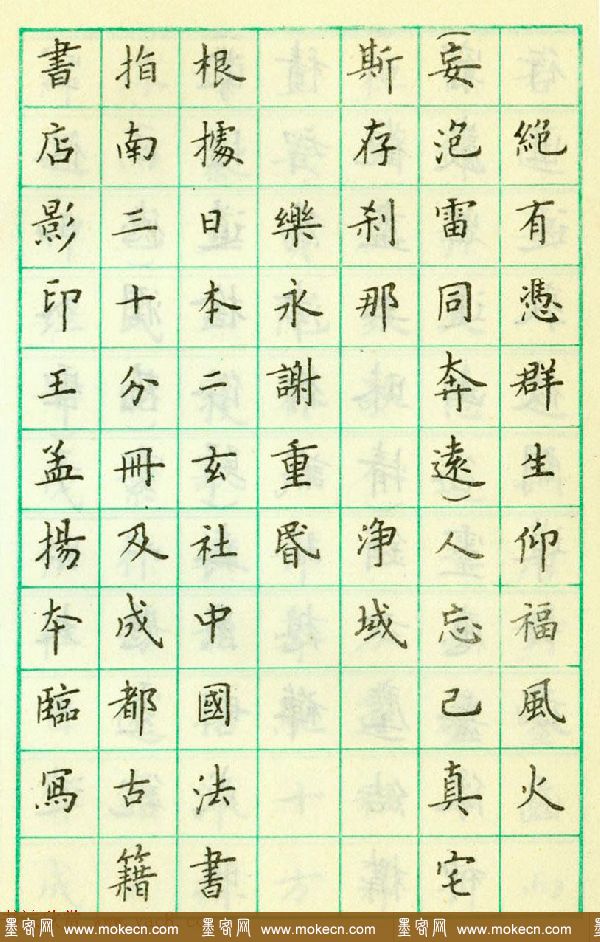 絕有憑群生仰福風火
（妄泡雷同奔遠）人忘己真宅
斯存刹那　淨域
樂永謝重昏
根據日本二玄社中國法書
指南三十分冊及成都古籍
書店影印王孟揚本臨寫
墨客网 www.mokecn.com 墨客网 www.mokecn.com 墨客网 www.mokecn.com